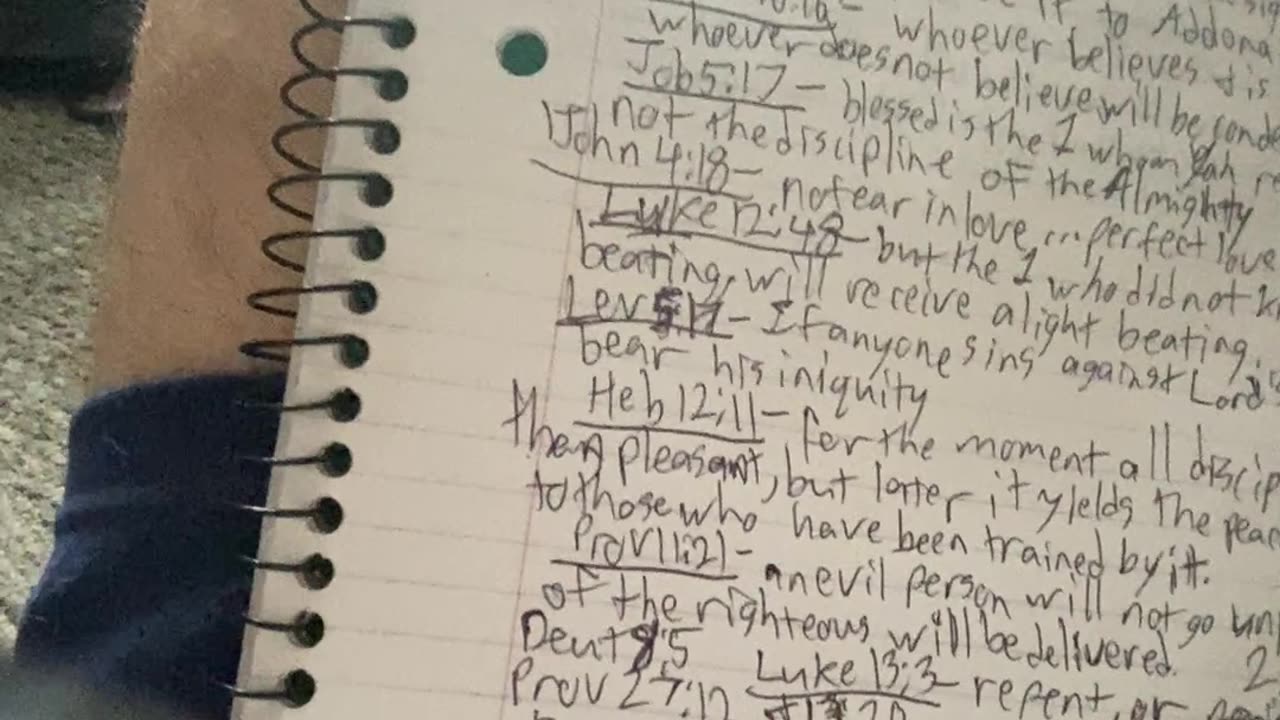 it to Addona
whoever believes + is
whoever does not believe will be conde
Job 5:17 - blessed is the 1 whom Yah r
not the discipline of the Almighty
1 John 4:18 - no fear in love, ... perfect love
Luke 12:48 - but the 1 who did not k
beating, will receive a light beating.
Lev 5:17 - If anyone sins against Lord
bear his iniquity
Heb 12:11 - for the moment all discip
than pleasant, but latter it yields the peac
to those who have been trained by it.
Prov 11:21 - an evil person will not go un
of the righteous will be delivered. 2
Deut 8:5
Luke 13:3 - repent, or
Prov 27:12